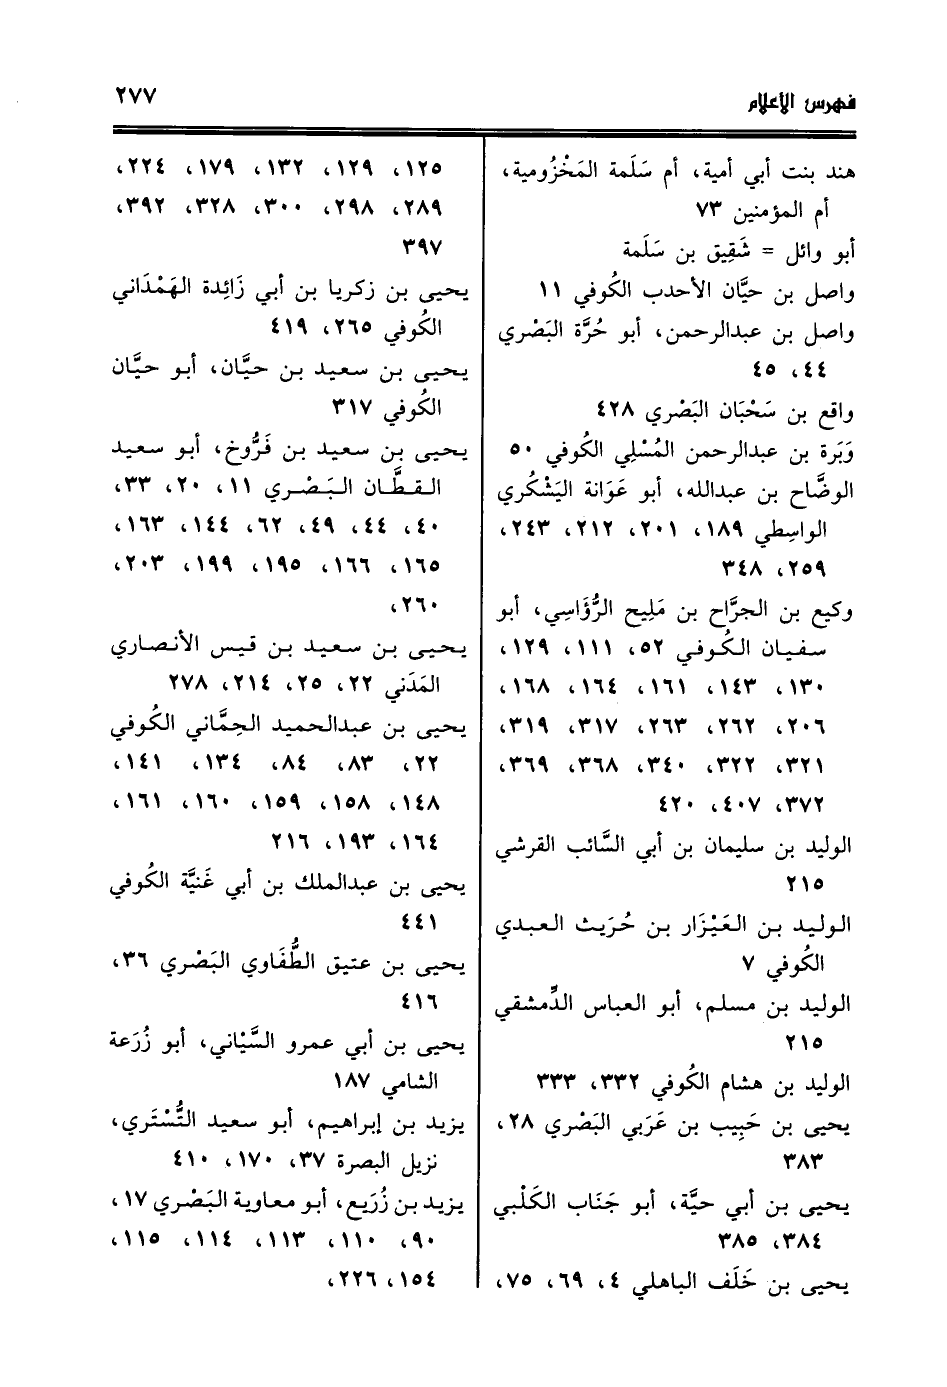 فهرس الأعلام
٢٧٧
هند بنت أبي أمية، أم سَلَمة المَخْزُومية،
أم المؤمنين ٧٣
أبو وائل = شَقِيق بن سَلَمة
واصل بن حيَّان الأحدب الكُوفي ١١
واصل بن عبدالرحمن، أبو حُرَّة البَصْري
٤٤، ٤٥
واقع بن سَحْبَان البَصْري ٤٢٨
وَبَرَة بن عبدالرحمن المُسْلِي الكُوفي ٥٠
الوضَّاح بن عبدالله، أبو عَوَانة اليَشْكُري
الواسِطي ١٨٩، ٢٠١، ٢١٢، ٢٤٣،
٢٥٩، ٣٤٨
وكيع بن الجرَّاح بن مَلِيح الرُّؤَاسِي، أبو
سفيان الكُوفي ٥٢، ١١١، ١٢٩،
١٣٠، ١٤٣، ١٦١، ١٦٤، ١٦٨،
٢٠٦، ٢٦٢، ٢٦٣، ٣١٧، ٣١٩،
٣٢١، ٣٢٢، ٣٤٠، ٣٦٨، ٣٦٩،
٣٧٢، ٤٠٧، ٤٢٠
الوليد بن سليمان بن أبي السَّائب القرشي
٢١٥
الوليد بن العَيْزَار بن حُرَيث العبدي
الكُوفي ٧
الوليد بن مسلم، أبو العباس الدِّمشقي
٢١٥
الوليد بن هشام الكُوفي ٣٣٢، ٣٣٣
يحيى بن حَبِيب بن عَرَبي البَصْري ٢٨،
٣٨٣
يحيى بن أبي حيَّة، أبو جَنَاب الكَلْبي
٣٨٤، ٣٨٥
يحيى بن خَلَف الباهلي ٤، ٦٩، ٧٥،
١٢٥، ١٢٩، ١٣٢، ١٧٩، ٢٢٤،
٢٨٩، ٢٩٨، ٣٠٠، ٣٢٨، ٣٩٢،
٣٩٧
يحيى بن زكريا بن أبي زَائِدة الهَمْدَاني
الكُوفي ٢٦٥، ٤١٩
يحيى بن سعيد بن حيَّان، أبو حيَّان
الكُوفي ٣١٧
يحيى بن سعيد بن فَرُّوخ، أبو سعيد
القطَّان البَصْري ١١، ٢٠، ٣٣،
٤٠، ٤٤، ٤٩، ٦٢، ١٤٤، ١٦٣،
١٦٥، ١٦٦، ١٩٥، ١٩٩، ٢٠٣،
٢٦٠،
يحيى بن سعيد بن قيس الأنصاري
المَدَني ٢٢، ٢٥، ٢١٤، ٢٧٨
يحيى بن عبدالحميد الحِمَّاني الكُوفي
٢٢، ٨٣، ٨٤، ١٣٤، ١٤١،
١٤٨، ١٥٨، ١٥٩، ١٦٠، ١٦١،
١٦٤، ١٩٣، ٢١٦
يحيى بن عبدالملك بن أبي غَنيَّة الكُوفي
٤٤١
يحيى بن عتيق الطُّفَاوي البَصْري ٣٦،
٤١٦
يحيى بن أبي عمرو السَّيْاني، أبو زُرَعة
الشامي ١٨٧
يزيد بن إبراهيم، أبو سعيد التُّسْتَري،
نزيل البصرة ٣٧، ١٧٠، ٤١٠
يزيد بن زُرَيع، أبو معاوية البَصْري ١٧،
٩٠، ١١٠، ١١٣، ١١٤، ١١٥،
١٥٤، ٢٢٦،